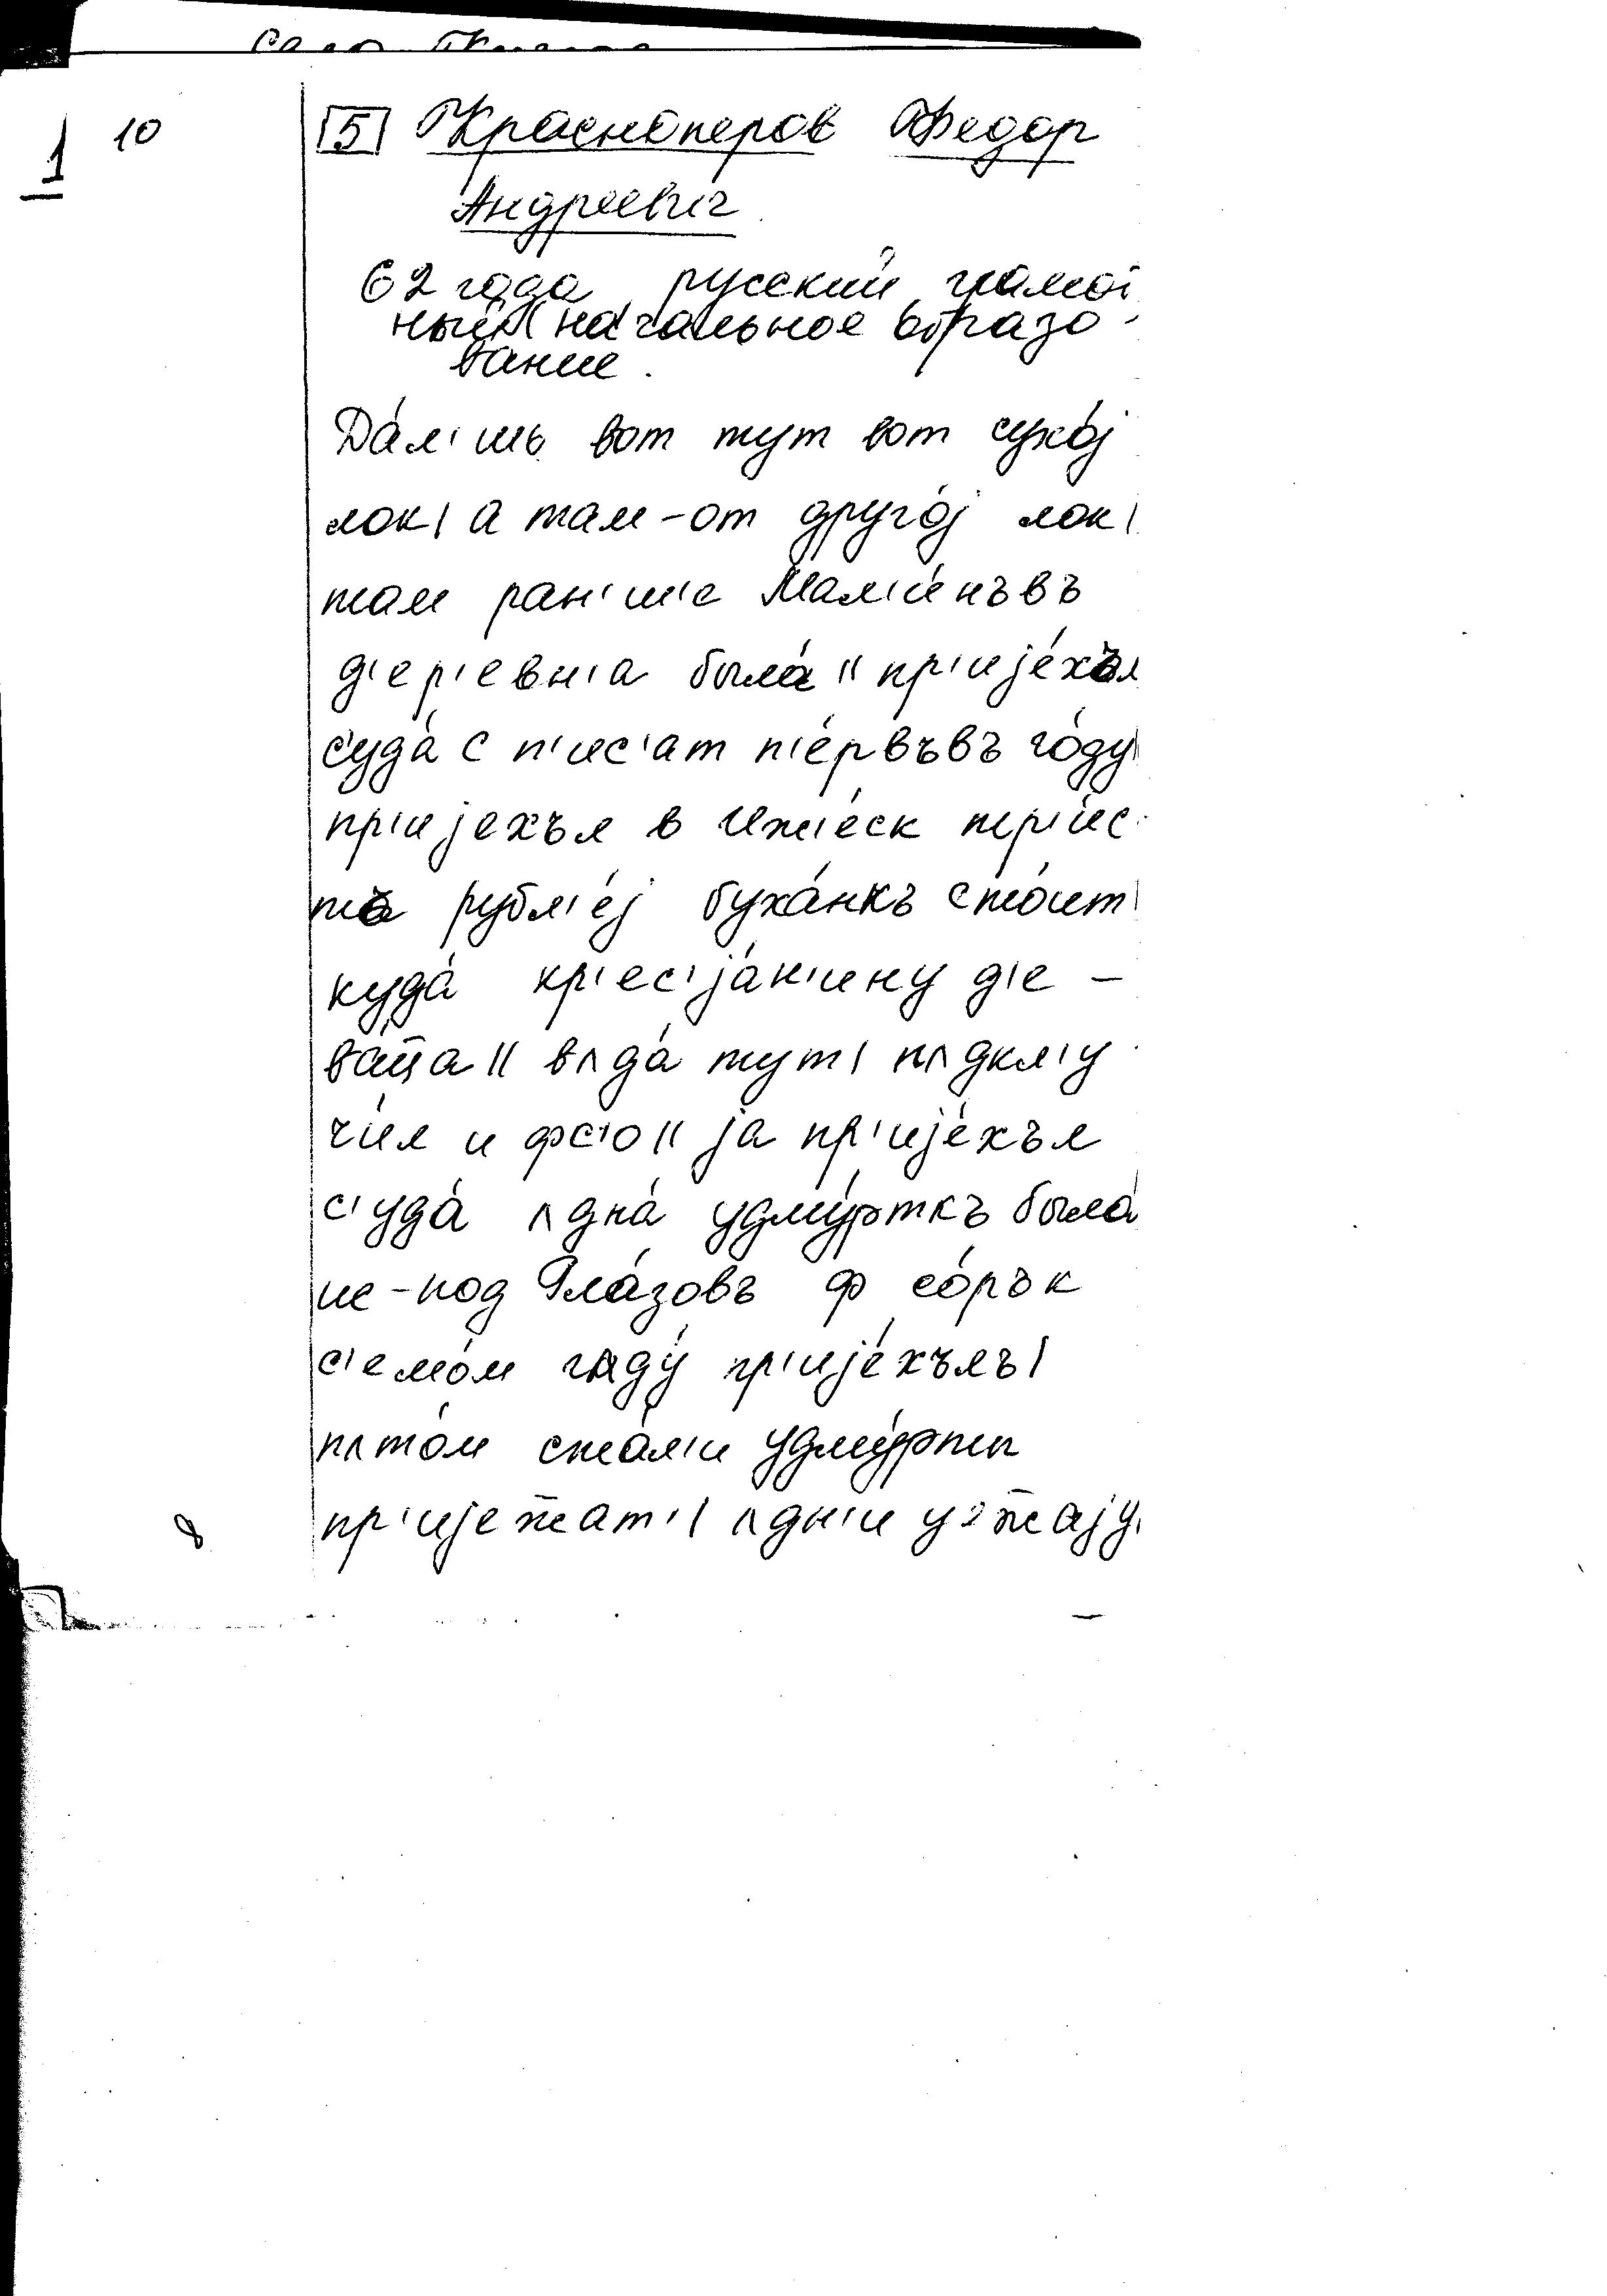 1 10
[5] Красноперов Федор
Андреевич
62 года русский грамот
ный начальное образо-
вание.
Да́л'шь вот тут вот сухо́j
лок| а там-от друго́j лок|
там ран'ш'е Мал'и́нъвъ
д'ер'евн'а была́ || пр'ијéхъл
с'уда́ с п'ис'ат п'е́рвъвъ го́ду|
пр'ијехъл в Иж'еск тр'и́с-
та рубл'éj буха́нкъ сто́ит|
куда́ кр'ес'jа́н'ину д'е-
ва́ц̄а || вʌда́ тут| пʌдкл'у
чи́л и фс'о || ja пр'ијéхъл
с'уда́ ʌдна́ удму́рткъ была́
ис-под Гла́зовъ ф со́рък
с'емо́м гʌду́ пр'ијéхълъ|
пʌто́м ста́л'и удму́рты
пр'ијежат'| ʌдн'и уэжаjу
8